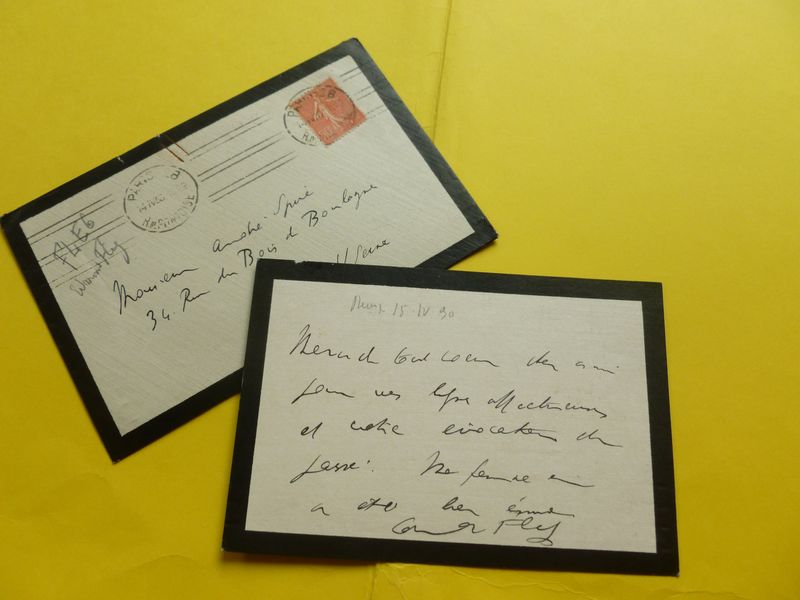 PARIS
R. LA POINTOISE
FLEG
Edmond Fleg
Monsieur André Spire
34 Rue du Bois de Boulogne
s/Seine
15 · IV 30
Merci de tout coeur cher ami
pour vos lignes affectueuses
et votre évocation du
passé. Ma femme en
a été bien émue
Edmond Fleg